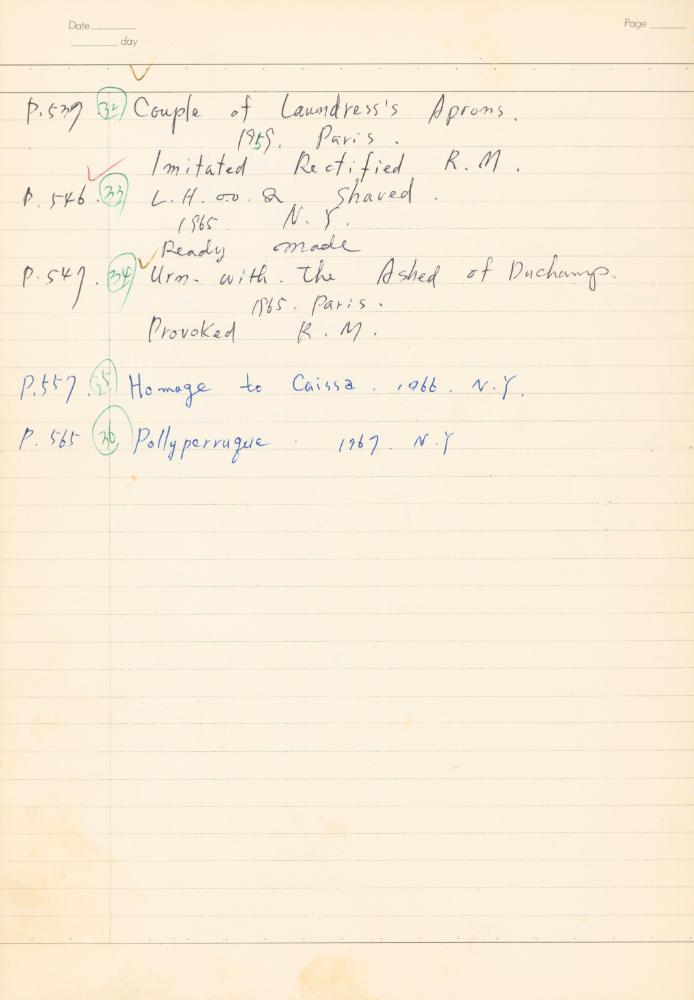 Date
Page
day
P.537 32 Couple of Laundress's Aprons.
1959. Paris.
Imitated Rectified R.M.
P.546. 33 L.H.oo.Q Shaved.
1965. N.Y.
Ready made
P.547. 34 Urn. with. The Ashed of Duchamp.
1965. Paris.
Provoked R.M.
P.557. 35 Homage to Caissa. 1966. N.Y.
P.565 36 Pollyperruque. 1967. N.Y